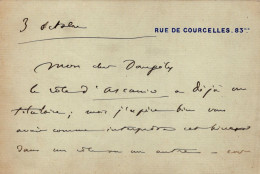 3 Octobre
RUE DE COURCELLES. 83
Mon cher
le rôle d'Ascanio a déjà un
titulaire; mais j'espère bien vous
avoir comme interprète cet hiver
dans un rôle ou un autre -